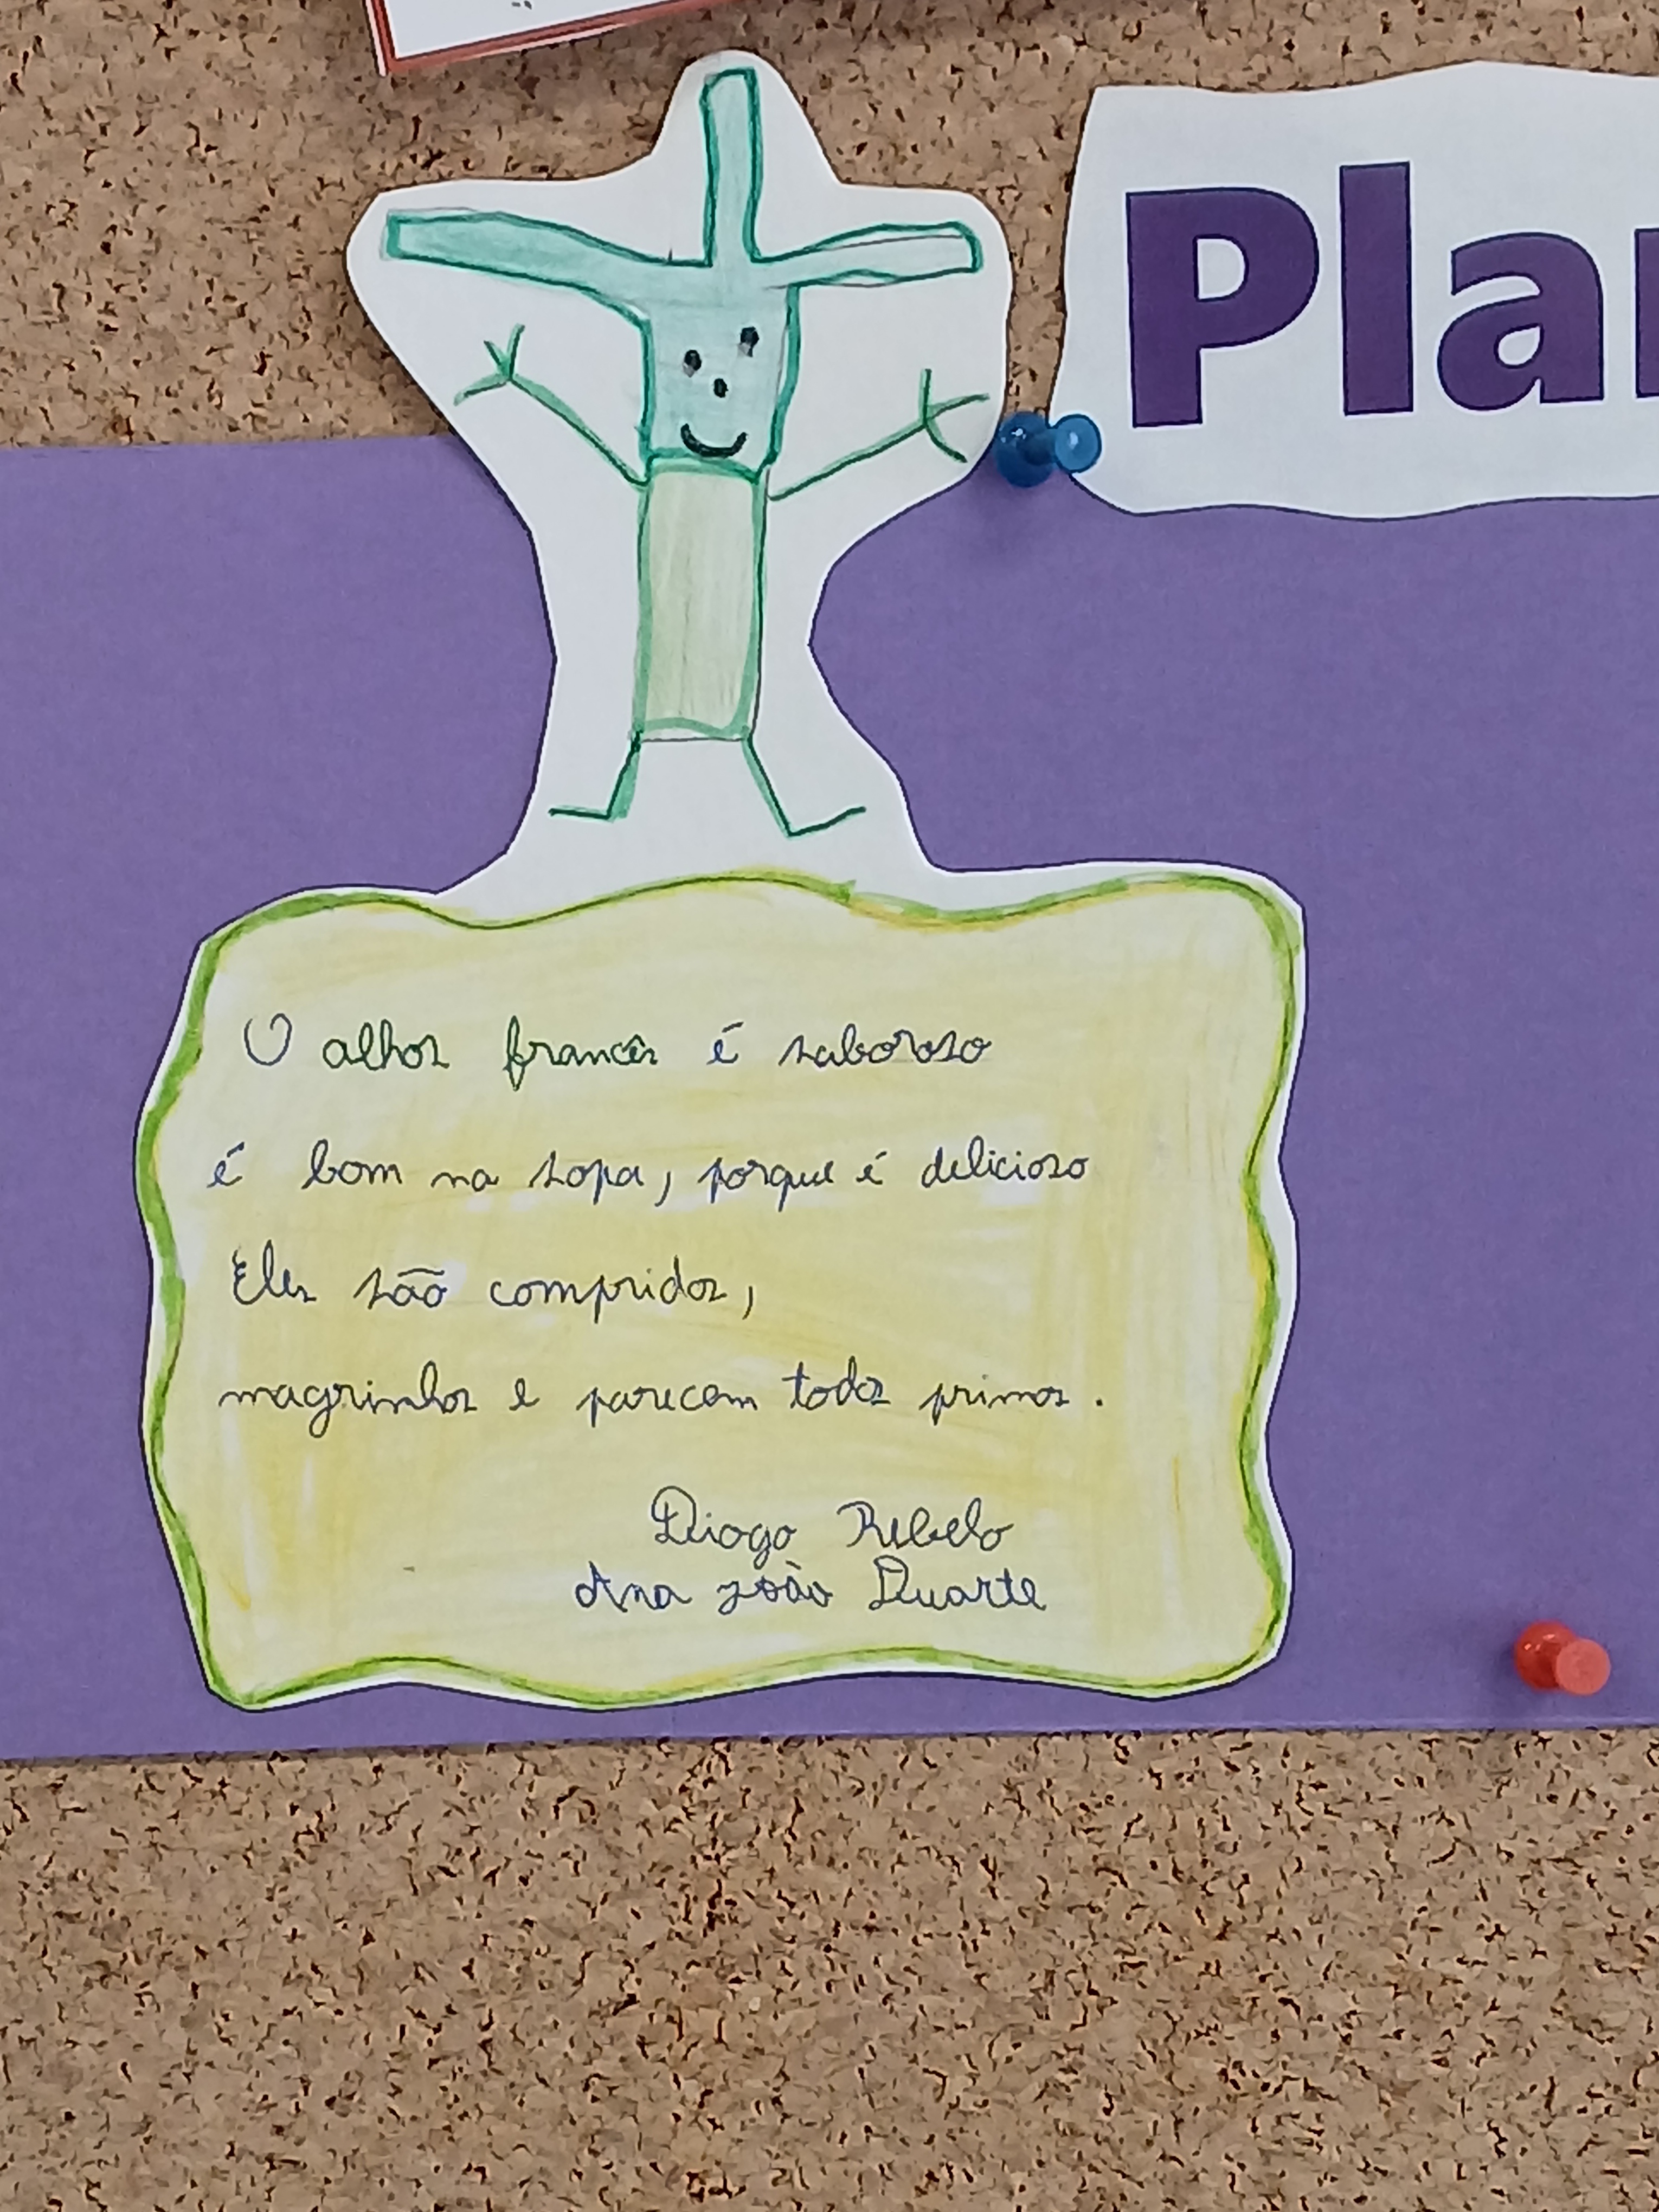 Pla
O alhos francês é saboroso
é bom na sopa, porque é delicioso
Eles são compridos,
magrinhos e parecem todos primos.
Diogo Rebelo
Ana João Duarte